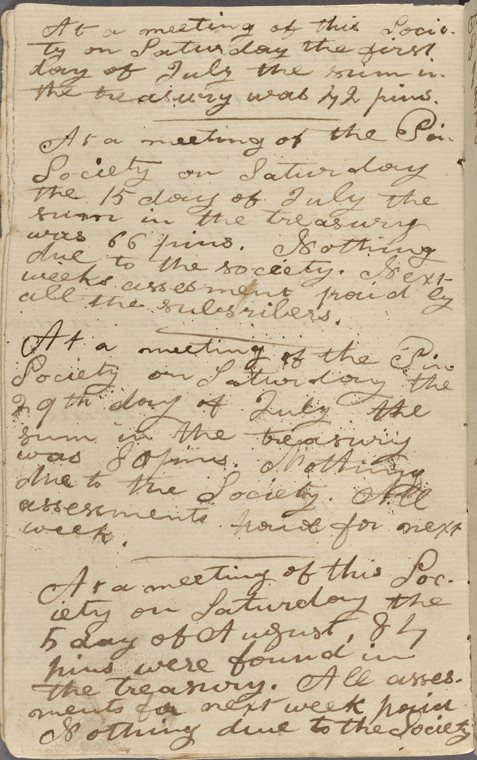 At a meeting of this Socie-
ty on Saturday the first
day of July the sum in
the treasury was 42 pins.
At a meeting of the Pin
Society on Saturday
the 15 day of July the
sum in the treasury
was 66 pins. Nothing
due to the society. Next
weeks assesment paid by
all the subsribers.
At a meeting of the Pin
Society on Saturday the
29th day of July the
sum in the treasury
was 80 pins. Nothing
due to the Society. All
assessments paid for next
week.
At a meeting of this Soc-
iety on Saturday the
5 day of August, 84
pins were found in
the treasury. All asses-
ments for next week paid
Nothing due to the Society